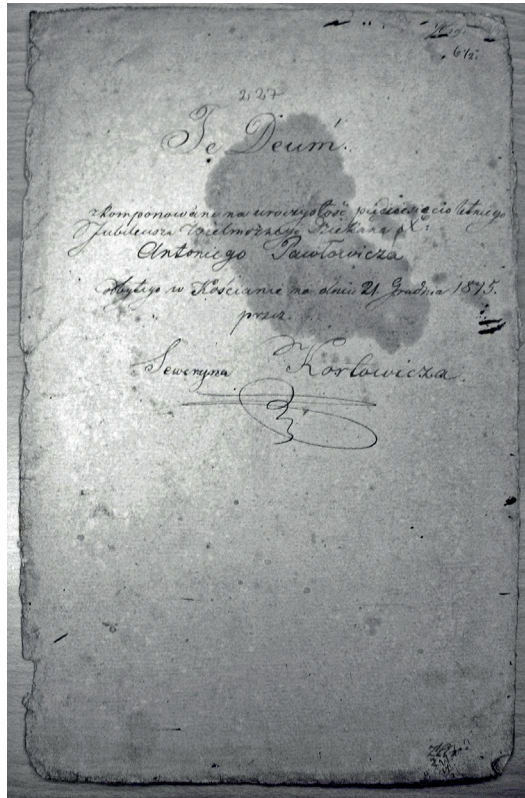 227
Te Deum.
skomponowane na uroczystość pięćdziesięcio letniego
Jubileusza Wielmożnego Dziekana
Antoniego Pawłowicza
odbytego w Kościanie na dniu 21 Grudnia 1875.
przez
Seweryna Karłowicza